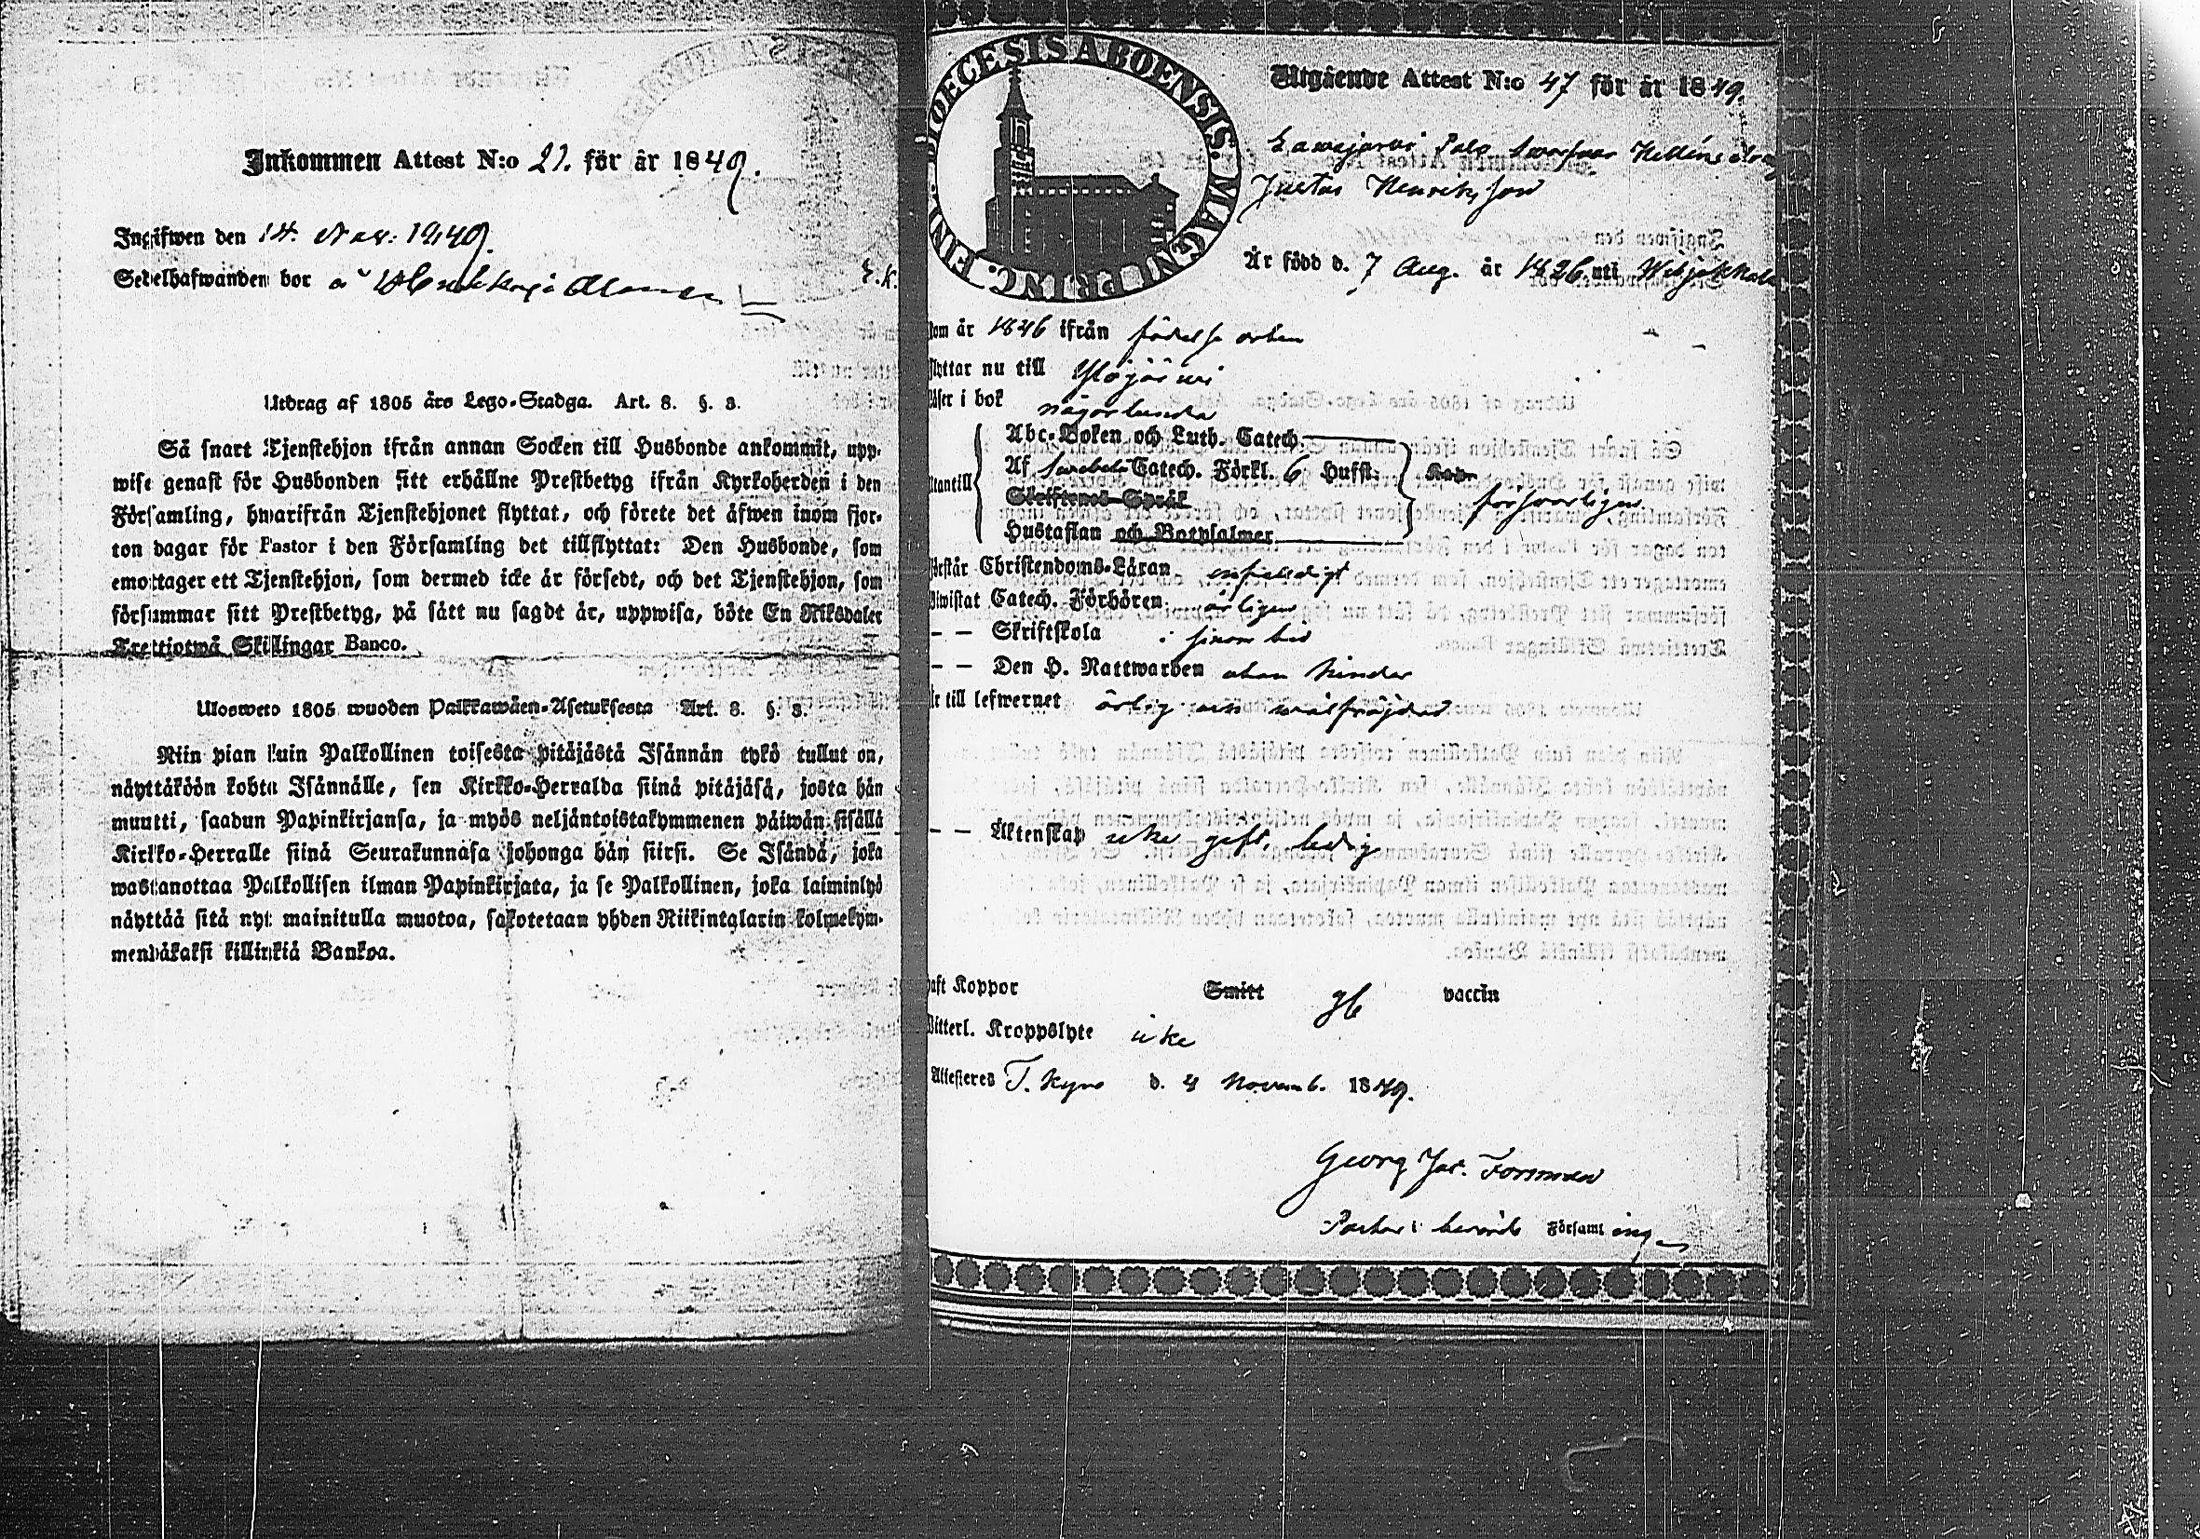 Inkommen Attest N:o 21. för år 1849.
Ingifwen den 14. Nov: 1849.
Sedelhafwanden bor å
Utdrag af 1805 års Lego-Stadga. Art. 8. §. 3.
Så snart Tjenstehjon ifrån annan Socken till Husbonde ankommit, upp-
wise genast för Husbonden sitt erhållne Prestbetyg ifrån Kyrkoherden i den
Församling, hwarifrån Tjenstehjonet flyttat, och förete det äfwen inom fjor-
ton dagar för Pastor i den Församling det tillflyttat: Den Husbonde, som
emottager ett Tjenstehjon, som dermed icke är försedt, och det Tjenstehjon, som
försummar sitt Prestbetyg, på sätt nu sagdt är, uppwisa, böte En Riksdaler
Trettiotwå Skillingar Banco.
Ulosweto 1805 wuoden Palkkawäen-Asetuksesta Art. 8. §. 3.
Niin pian kuin Palkollinen toisesta pitäjästä Isännän tykö tullut on,
näyttäköön kohta Isännälle, sen Kirkko-Herralda siinä pitäjäsä, josta hän
muutti, saadun Papinkirjansa, ja myös neljäntoistakymmenen päiwän sisällä
Kirkko-Herralle siinä Seurakunnasa johonga hän siirsi. Se Isändä, joka
wastanottaa Palkollisen ilman Papinkirjata, ja se Palkollinen, joka laiminlyö
näyttää sitä nyt mainitulla muotoa, sakotetaan yhden Riikintalarin kolmekym-
mendäkaksi killinkiä Bankoa.
DIOECESIS ABOENSIS. MAGNI PRINC. FINL.
Utgående Attest N:o 47 för år 1849.
Justus Henriksson
Är född d. 7 Aug. år 1826 uti
kom år 1846 ifrån födelse orten
flyttar nu till Ylöjärvi
läser i bok någorlunda
Abc-Boken och Luth. Catech.
Af Svebelii Catech. Förkl. 6 Hufst.
utantill
Skriftenes Språk
försvarligen
Hustaflan och Botpsalmer
förstår Christendoms-Läran
Biwistat Catech. Förhören årligen
— — Skriftskola i sinom tid
— — Den H. Nattwarden utan hinder
är till lefwernet ärlig och wälfräjdad
— — Äktenskap icke gift, ledig
haft Koppor Smitt vaccin
Witterl. Kroppslyte icke
Attesteres T. Kyro d. 4 Novemb. 1849.
Georg Jac. Forsman
Pastor i berörde Församlingen